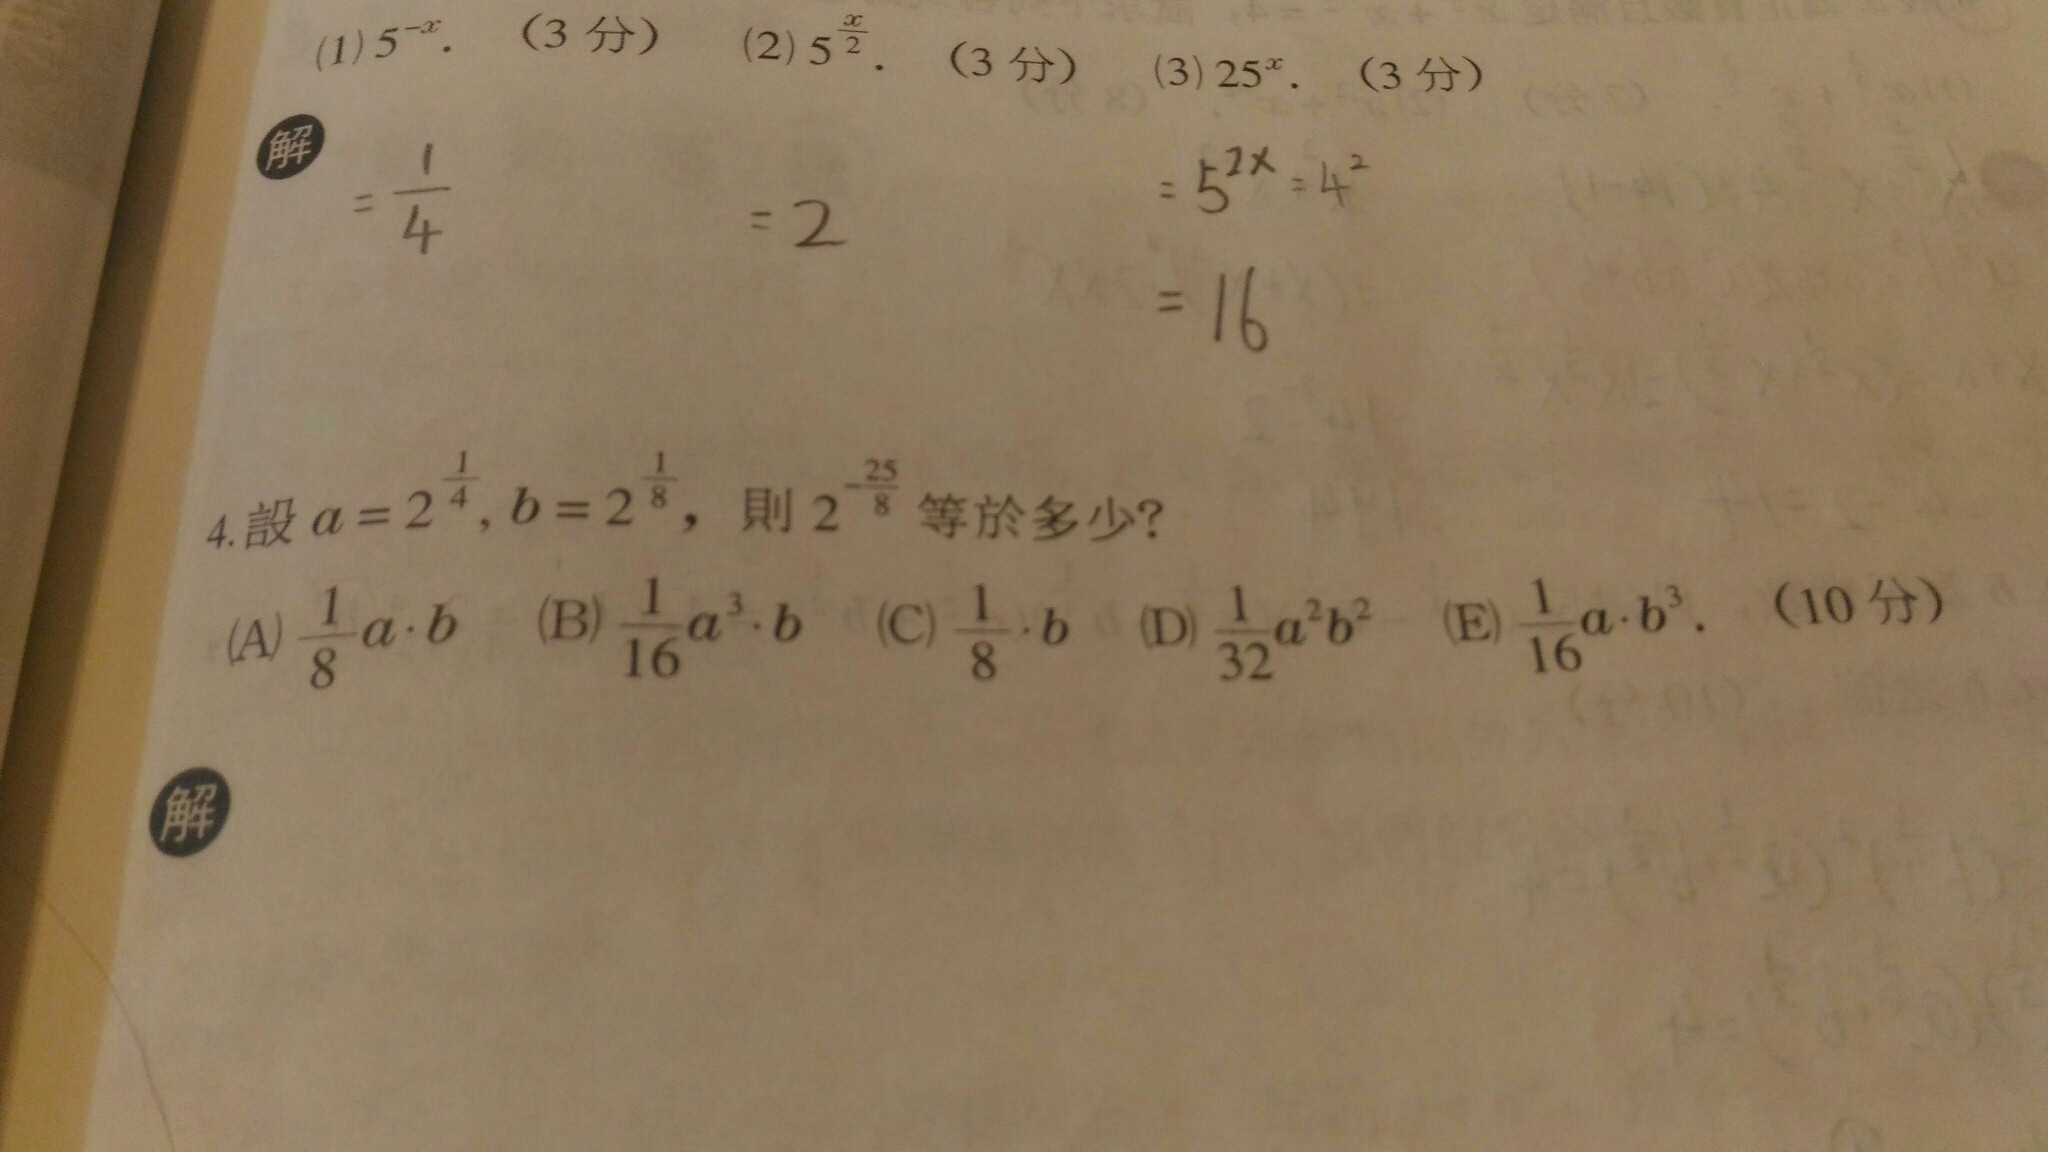 (1) 5^{-x}. （3 分） (2) 5^{\frac{x}{2}}. （3 分） (3) 25^x. （3 分）
解 = \frac{1}{4} = 2 = 5^{2x} = 4^2
= 16
4. 設 a = 2^{\frac{1}{4}}, b = 2^{\frac{1}{8}}，則 2^{-\frac{25}{8}} 等於多少?
(A) \frac{1}{8} a · b (B) \frac{1}{16} a^3 · b (C) \frac{1}{8} · b (D) \frac{1}{32} a^2b^2 (E) \frac{1}{16} a · b^3. （10 分）
解